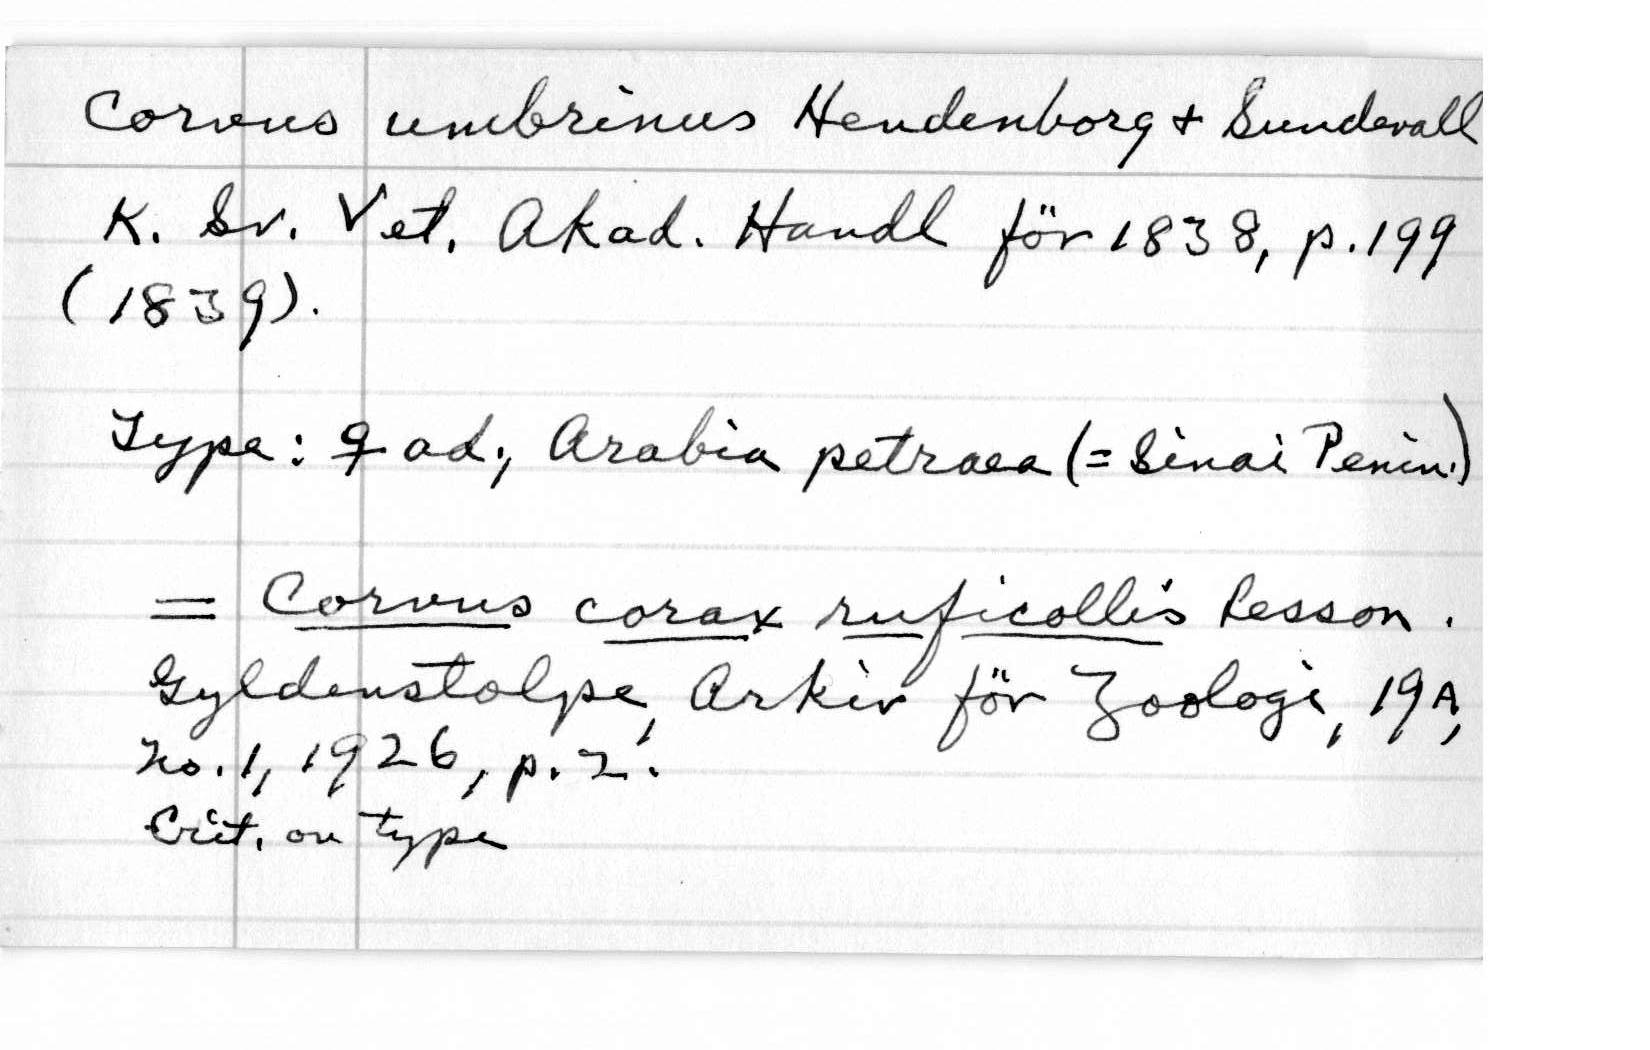 Corvus umbrinus Hendenborg + Sundevall
K. Sv. Vet. Akad. Handl för 1838, p. 199
(1839).
Type: ♀ ad., Arabia petraea (= Sinai Penin.)
= Corvus corax ruficollis Lesson.
Gyldenstolpe, Arkiv för Zoologi, 19A,
No. 1, 1926, p. 2.
Crit. on type